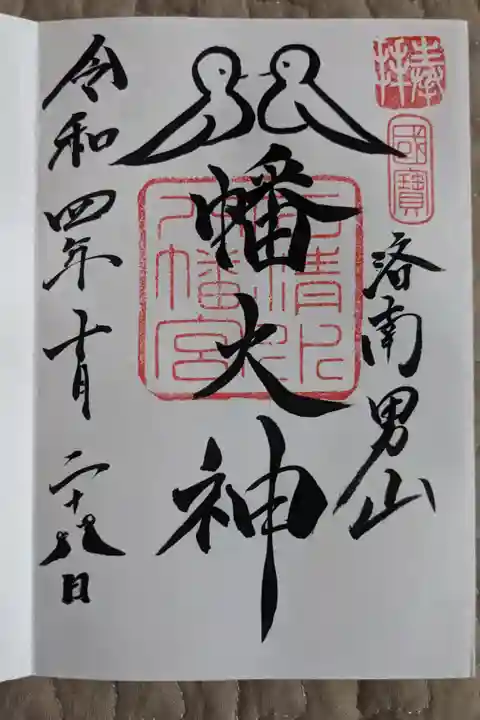 奉拝
國寶
洛南男山
八幡大神
石清水
八幡宮
令和四年十月二十八日